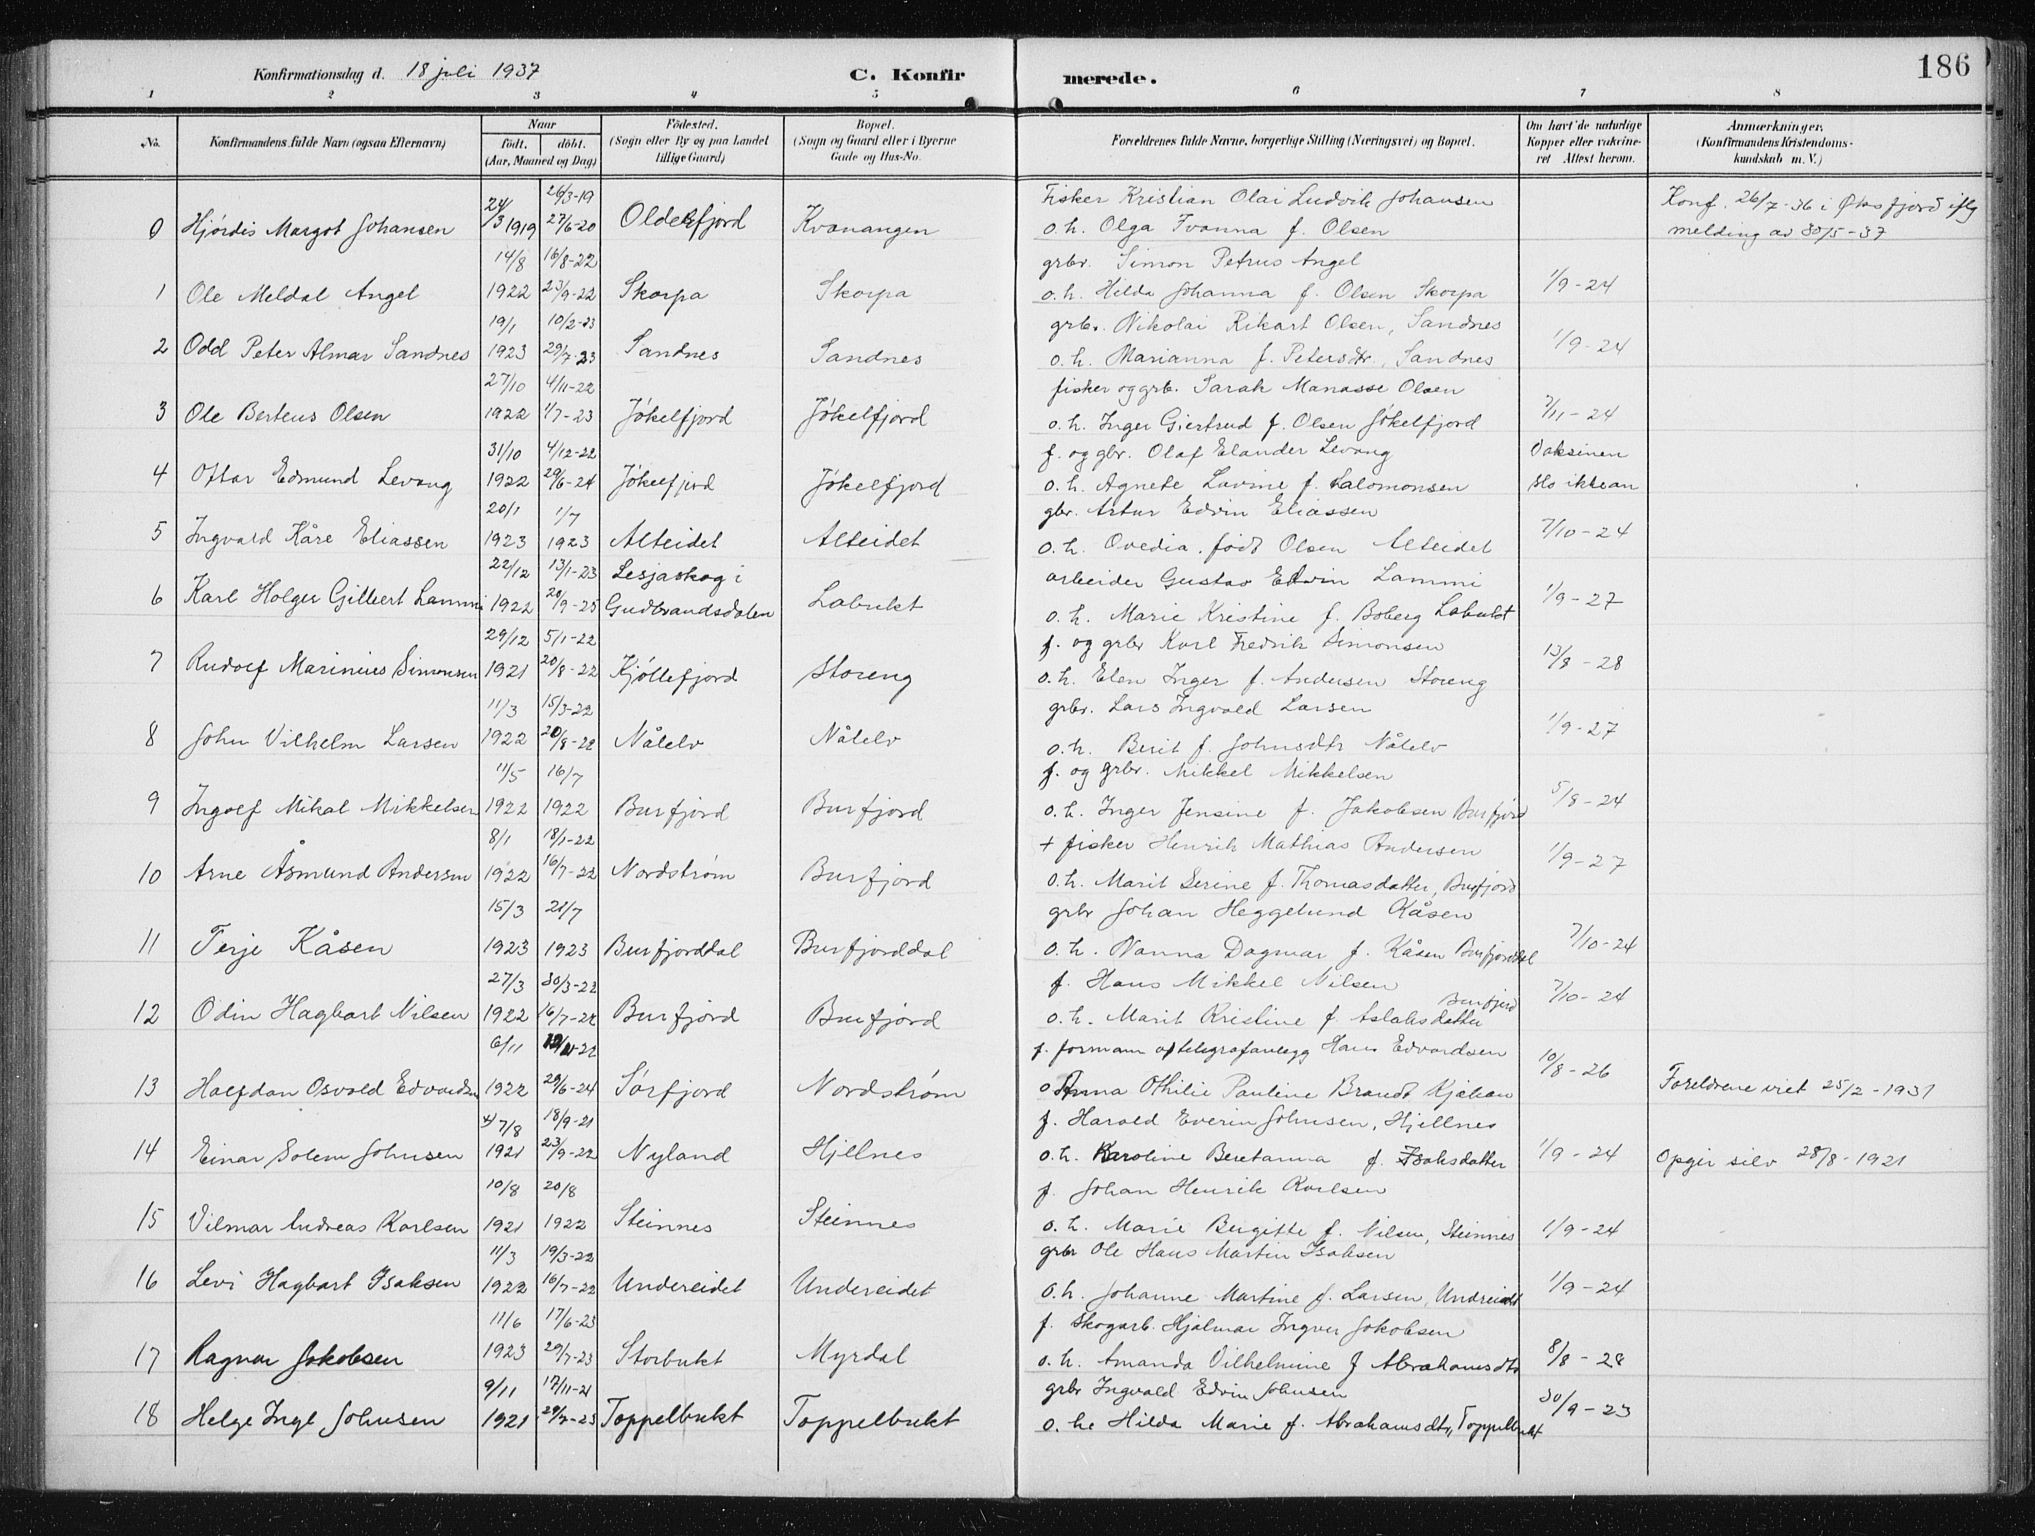 186
Konfirmationsdag d. 18 juli 1937 C. Konfirmerede.
1 2 3 4 5 6 7 8
No. Konfirmandens fulde Navn (ogsaa Efternavn) Naar født. døbt. (Aar, Maaned og Dag) Fødested. (Sogn eller By og paa Landet tillige Gaard) Bopæl. (Sogn og Gaard eller i Byerne Gade og Hus-No. Forældrenes fulde Navne, borgerlige Stilling (Næringsvei) og Bopæl. Om havt de naturlige Kopper eller vakcineret Attest herom. Anmærkninger. (Konfirmandens Kristendomskundskab m. V.)
26/3-19 Fisker Kristian Olai Ludvik Johansen Konf. 26/7-36 i Øksfjord iflg
0 Hjørdis Margot Johansen 24/3 1919 27/6-20 Olderfjord Kvænangen o. h. Olga Ivanna f. Olsen melding av 30/5-37
14/8 16/8-22 grbr. Simon Petrus Angel
1 Ole Meldal Angel 1922 23/9-22 Skorpa Skorpa o. h. Hilda Johanna f. Olsen Skorpa 1/9-24
19/1 10/2-23 grbr. Nikolai Rikart Olsen, Sandnes
2 Odd Peter Almar Sandnes 1923 29/7-23 Sandnes Sandnes o. h. Marianna f. Petersdtr., Sandnes 1/9-24
27/10 4/11-22 fisker og grb. Sarak Manasse Olsen
3 Ole Berteus Olsen 1922 1/7-23 Jøkelfjord Jøkelfjord o. h. Inger Giertrud f. Olsen Jøkelfjord 7/11-24
31/10 4/12-22 f. og gbr. Olaf Elander Levang Vaksinen
4 Ottar Edmund Levang 1922 29/6-24 Jøkelfjord Jøkelfjord o. h. Agnete Lovine f. Salomonsen slo ikke an
20/1 1/7 gbr. Artur Edvin Eliassen
5 Ingvald Kåre Eliassen 1923 1923 Alteidet Alteidet o. h. Ovedia. født Olsen Alteidet 7/10-24
22/12 13/1-23 Lesjaskog i arbeider Gustav Edvin Lammi
6 Karl Holger Gilbert Lammi 1922 20/9-25 Gudbrandsdalen Labukt o. h. Marie Kristine f. Boberg Labukt 1/9-27
29/12 5/1-22 f. og grbr Karl Fredrik Simonsen
7 Rudolf Marinius Simonsen 1921 20/8-22 Kjøllefjord Storeng o. h. Elen Inger f. Andersen Storeng 13/8-28
11/3 15/3-22 grbr. Lars Ingvald Larsen
8 John Vilhelm Larsen 1922 20/8-22 Nålelv Nålelv o. h. Berit f. Johnsdtr Nålelv 1/9-27
11/5 16/7 f. og grbr. Mikkel Mikkelsen
9 Ingolf Mikal Mikkelsen 1922 1922 Burfjord Burfjord o. h. Inger Jensine f. Jakobsen Burfjord 5/8-24
8/1 18/1-22 + fisker Henrik Mathias Andersen
10 Arne Åsmund Andersen 1922 16/7-22 Nordstrøm Burfjord o. h. Marit Serine f. Thomasdatter, Burfjord 1/9-27
15/3 21/7 grbr Johan Heggelund Kåsen
11 Terje Kåsen 1923 1923 Burfjorddal Burfjorddal o. h. Nanna Dagmar f. Kåsen Burfjorddal 7/10-24
27/3 30/3-22 f. Hans Mikkel Nilsen
12 Odin Hagbart Nilsen 1922 16/7-22 Burfjord Burfjord o. h. Marit Kristine f. Aslaksdatter Burfjord 7/10-24
6/11 f. formann telegrafanlegg Hans Edvardsen
13 Halfdan Osvald Edvardsen 1922 29/6-24 Sørfjord Nordstrøm Anna Othilie Pauline Brandt Kjækan 10/8-26 Foreldrene viet 25/2-1931
7/8 18/9-21 f. Harald Everin Johnsen, Hjellnes
14 Einar Solem Johnsen 1921 23/9-22 Nyland Hjellnes o. h. Karoline Beretanna f. Isaksdatter 1/9-24 Opgir selv 28/8-1921
10/8 20/8 f. Johan Henrik Karlsen
15 Vilmar Andreas Karlsen 1921 1922 Steinnes Steinnes o. h. Marie Birgitte f. Nilsen, Steinnes 1/9-24
11/3 19/3-22 grbr Ole Hans Martin Isaksen
16 Levi Hagbart Isaksen 1922 16/7-22 Undereidet Undereidet o. h. Johanne Martine f. Larsen, Undreidet 1/9-24
11/6 17/6-23 f. skogarb. Hjalmar Ingver Jakobsen
17 Ragnar Jakobsen 1923 29/7-23 Storbukt Myrdal o. h. Amanda Vilhelmine f Abrahamsdtr 8/8-28
9/11 17/11-21 grbr Ingvald Edvin Johnsen
18 Helge Ingl Johnsen 1921 29/7-23 Toppelbukt Toppelbukt o. h. Hilda Marie f. Abrahamsdtr, Toppelbukt 30/9-23